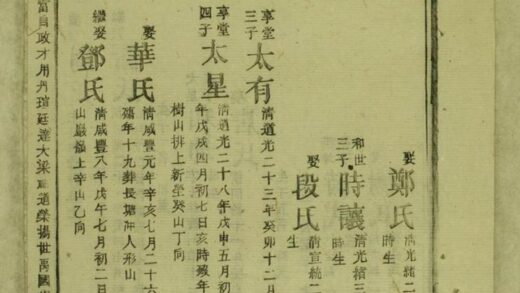 娶鄭氏
清光緒二
時生
和世三子時讓
清光緒三
時生
娶段氏
清宣統二
生
享堂三子太有
清道光二十三年癸卯十二月
享堂四子太星
清道光二十八年戊申五月初
年戊戌四月初七日亥時歿年
樹山排上新塋癸山丁向
娶華氏
清咸豐元年辛亥七月二十六
殤年十九葬長塘沖人形山
繼娶鄧氏
清咸豐八年戊午七月初二日
山嚴 上辛山乙向
富自政才用丹瑄廷達大梁 道榮揚世萬國